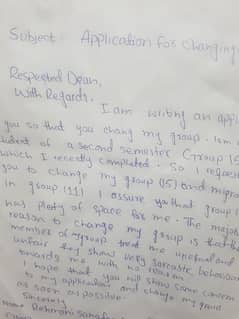 Subject Application for Changing
Respected Dean,
With Regards.
I am writing an appli
you so that you chang my group. Iam
student of a second semester Group 15
which I recently completed. So I request
you to change my group (15) and
in group (11) I assure you that group
has plenty of space for me. The major
reason to change my group is that the
member of group treat me unequal and
unfair they show very sarcastic behaviour
towards me with no reason
I hope that you will show some concern
to my application and change my group
as soon as possible.
Sincerely
Name Rehmani